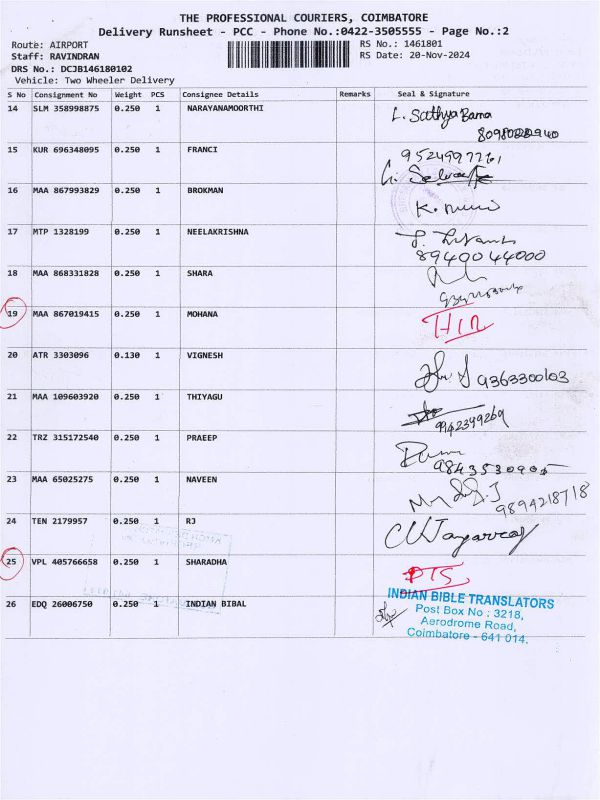 THE PROFESSIONAL COURIERS, COIMBATORE
Delivery Runsheet - PCC - Phone No.:0422-3505555 - Page No.:2
Route: AIRPORT RS No.: 1461801
Staff: RAVINDRAN RS Date: 20-Nov-2024
DRS No.: DCJB146180102
Vehicle: Two Wheeler Delivery
S No Consignment No Weight PCS Consignee Details Remarks Seal & Signature
14 SLM 358998875 0.250 1 NARAYANAMOORTHI L. Sathya Bama
15 KUR 696348095 0.250 1 FRANCI
16 MAA 867993829 0.250 1 BROKMAN
17 MTP 1328199 0.250 1 NEELAKRISHNA
8940044000
18 MAA 868331828 0.250 1 SHARA
19 MAA 867019415 0.250 1 MOHANA
20 ATR 3303096 0.130 1 VIGNESH 9363300103
21 MAA 109603920 0.250 1 THIYAGU
9942399269
22 TRZ 315172540 0.250 1 PRAEEP
9843530905
23 MAA 65025275 0.250 1 NAVEEN
9894218718
24 TEN 2179957 0.250 1 RJ
25 VPL 405766658 0.250 1 SHARADHA
26 EDQ 26006750 0.250 1 INDIAN BIBAL
INDIAN BIBLE TRANSLATORS
Post Box No : 3218,
Aerodrome Road,
Coimbatore - 641 014.